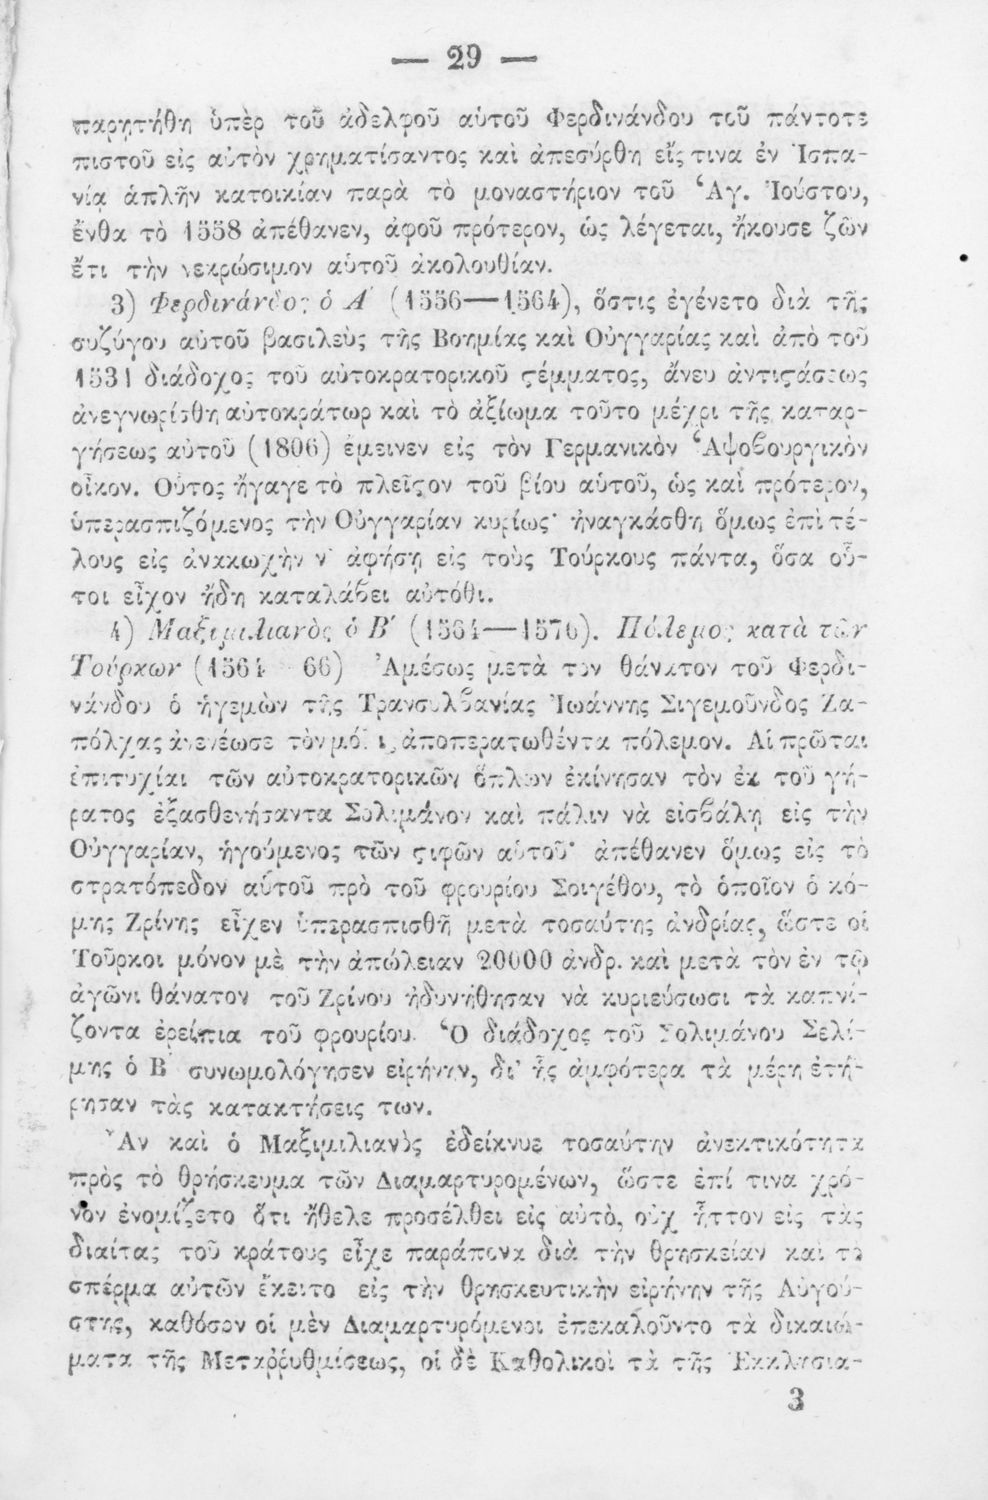 — 29 —
παρητήθη ὑπὲρ τοῦ ἀδελφοῦ αὑτοῦ Φερδινάνδου τοῦ πάντοτε
πιστοῦ εἰς αὐτὸν χρηματίσαντος καὶ ἀπεσύρθη εἴς τινα ἐν Ἱσπα-
νίᾳ ἁπλῆν κατοικίαν παρὰ τὸ μοναστήριον τοῦ Ἁγ. Ἰούστου,
ἔνθα τὸ 1558 ἀπέθανεν, ἀφοῦ πρότερον, ὡς λέγεται, ἤκουσε ζῶν
ἔτι τὴν νεκρώσιμον αὑτοῦ ἀκολουθίαν.
3) Φερδινάνδος ὁ Α΄ (1556—1564), ὅστις ἐγένετο διὰ τῆς
συζύγου αὑτοῦ βασιλεὺς τῆς Βοημίας καὶ Οὐγγαρίας καὶ ἀπὸ τοῦ
1531 διάδοχος τοῦ αὐτοκρατορικοῦ ϛέμματος, ἄνευ ἀντιϛάσεως
ἀνεγνωρίσθη αὐτοκράτωρ καὶ τὸ ἀξίωμα τοῦτο μέχρι τῆς καταρ-
γήσεως αὐτοῦ (1806) ἔμεινεν εἰς τὸν Γερμανικὸν Ἁψοβουργικὸν
οἶκον. Οὗτος ἤγαγε τὸ πλεῖϛον τοῦ βίου αὑτοῦ, ὡς καὶ πρότερον,
ὑπερασπιζόμενος τὴν Οὐγγαρίαν κυρίως· ἠναγκάσθη ὅμως ἐπὶ τέ-
λους εἰς ἀνακωχὴν ν' ἀφήσῃ εἰς τοὺς Τούρκους πάντα, ὅσα οὗ-
τοι εἶχον ἤδη καταλάβει αὐτόθι.
4) Μαξιμιλιανὸς ὁ Β΄ (1564—1576). Πόλεμος κατὰ τῶν
Τούρκων (1564 66) Ἀμέσως μετὰ τὸν θάνατον τοῦ Φερδι-
νάνδου ὁ ἡγεμὼν τῆς Τρανσυλβανίας Ἰωάννης Σιγεμοῦνδος Ζα-
πόλχας ἀνενέωσε τὸν μόλις ἀποπερατωθέντα πόλεμον. Αἱ πρῶται
ἐπιτυχίαι τῶν αὐτοκρατορικῶν ὅπλων ἐκίνησαν τὸν ἐκ τοῦ γή-
ρατος ἐξασθενήσαντα Σολιμάνον καὶ πάλιν νὰ εἰσβάλῃ εἰς τὴν
Οὐγγαρίαν, ἡγούμενος τῶν ϛιφῶν αὑτοῦ· ἀπέθανεν ὅμως εἰς τὸ
στρατόπεδον αὑτοῦ πρὸ τοῦ φρουρίου Σοιγέθου, τὸ ὁποῖον ὁ κό-
μης Ζρίνης εἶχεν ὑπερασπισθῆ μετὰ τοσαύτης ἀνδρίας, ὥστε οἱ
Τοῦρκοι μόνον μὲ τὴν ἀπώλειαν 20000 ἀνδρ. καὶ μετὰ τὸν ἐν τῷ
ἀγῶνι θάνατον τοῦ Ζρίνου ἠδυνήθησαν νὰ κυριεύσωσι τὰ καπνί-
ζοντα ἐρείπια τοῦ φρουρίου. Ὁ διάδοχος τοῦ Σολιμάνου Σελί-
μης ὁ Β΄ συνωμολόγησεν εἰρήνην, δι' ἧς ἀμφότερα τὰ μέρη ἐτή-
ρησαν τὰς κατακτήσεις των.
Ἂν καὶ ὁ Μαξιμιλιανὸς ἐδείκνυε τοσαύτην ἀνεκτικότητα
πρὸς τὸ θρήσκευμα τῶν Διαμαρτυρομένων, ὥστε ἐπί τινα χρό-
νον ἐνομίζετο ὅτι ἤθελε προσέλθει εἰς αὐτὸ, οὐχ ἧττον εἰς τὰς
διαίτας τοῦ κράτους εἶχε παράπονα διὰ τὴν θρησκείαν καὶ τὸ
σπέρμα αὐτῶν ἔκειτο εἰς τὴν θρησκευτικὴν εἰρήνην τῆς Αὐγού-
στης, καθόσον οἱ μὲν Διαμαρτυρόμενοι ἐπεκαλοῦντο τὰ δικαιώ-
ματα τῆς Μεταῤῥυθμίσεως, οἱ δὲ Καθολικοὶ τὰ τῆς Ἐκκλησια-
3